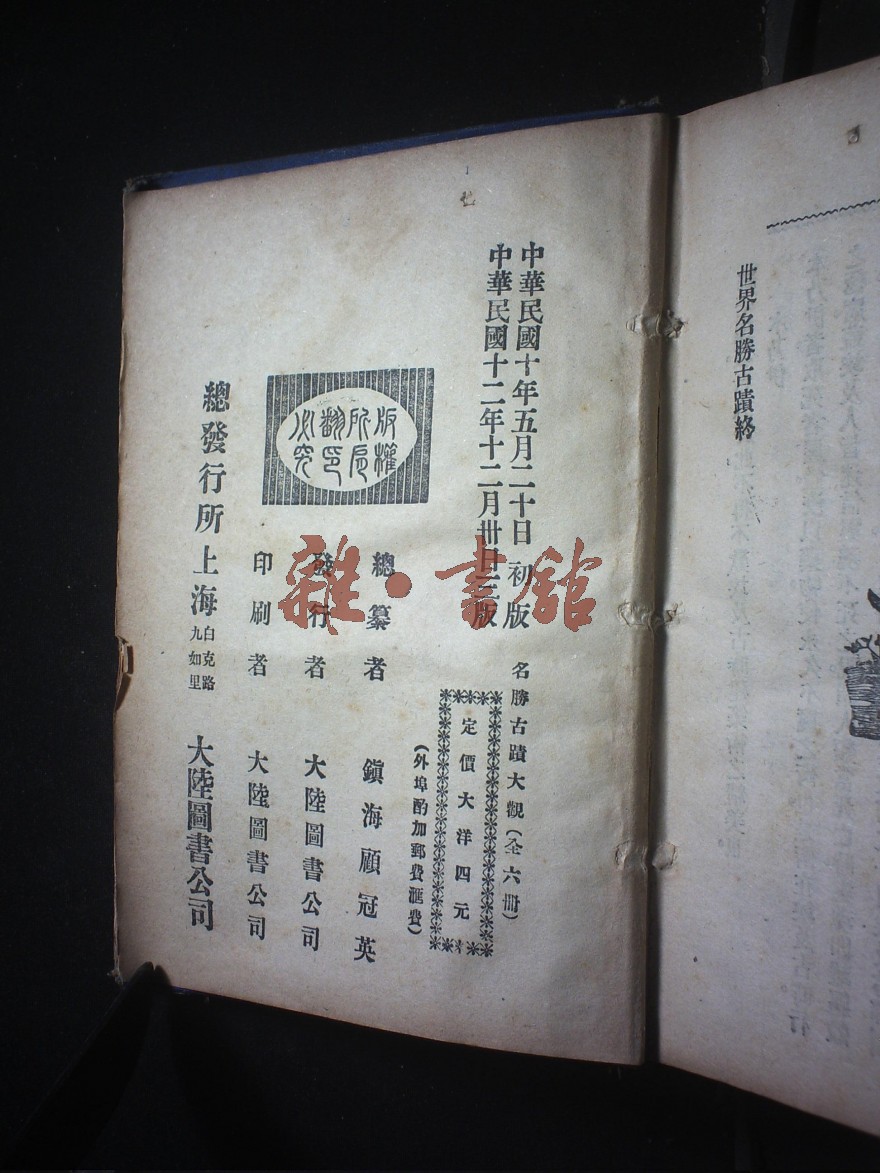 世界名勝古蹟終
中華民國十年五月二十日初版
中華民國十二年十二月卅日三版
名勝古蹟大觀(全六冊)
定價大洋四元
(外埠酌加郵費滙費)
版權
所有
翻印
必究
總纂者 鎭海顧冠英
發行者 大陸圖書公司
印刷者 大陸圖書公司
總發行所上海白克路九如里 大陸圖書公司
雜·書舘